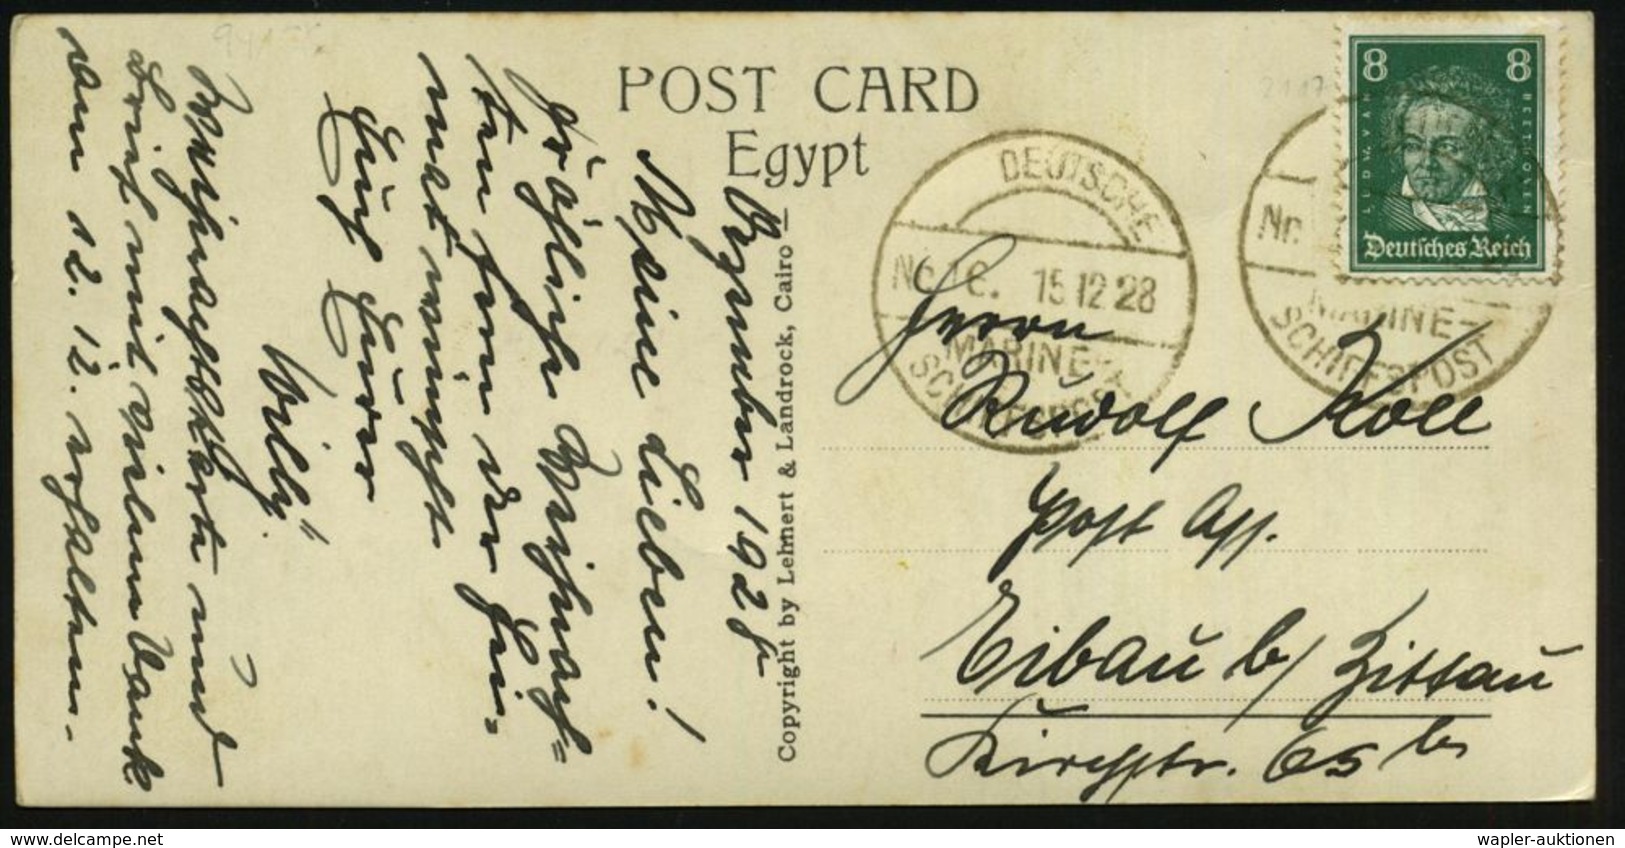 POST CARD
Egypt
8 8
LUDW. VAN BEETHOVEN
Deutsches Reich
DEUTSCHE
15 12 28
MARINE-
SCHIFFSPOST
Nr.
MARINE-
SCHIFFSPOST
Herrn
Rudolf Koll
Post Ass.
Eibau b/ Zittau
Kirchstr. 65 b
Copyright by Lehnert & Landrock, Cairo
Dezember 1928
Meine Lieben!
Fröhliche Weihnach=
ten fern der Hei=
mat wünscht
Euch Euer
Willy
Weihnachtskarte und
Brief mit vielem Dank
am 12. 12. erhalten.
delcampe.net
wapler-auktionen